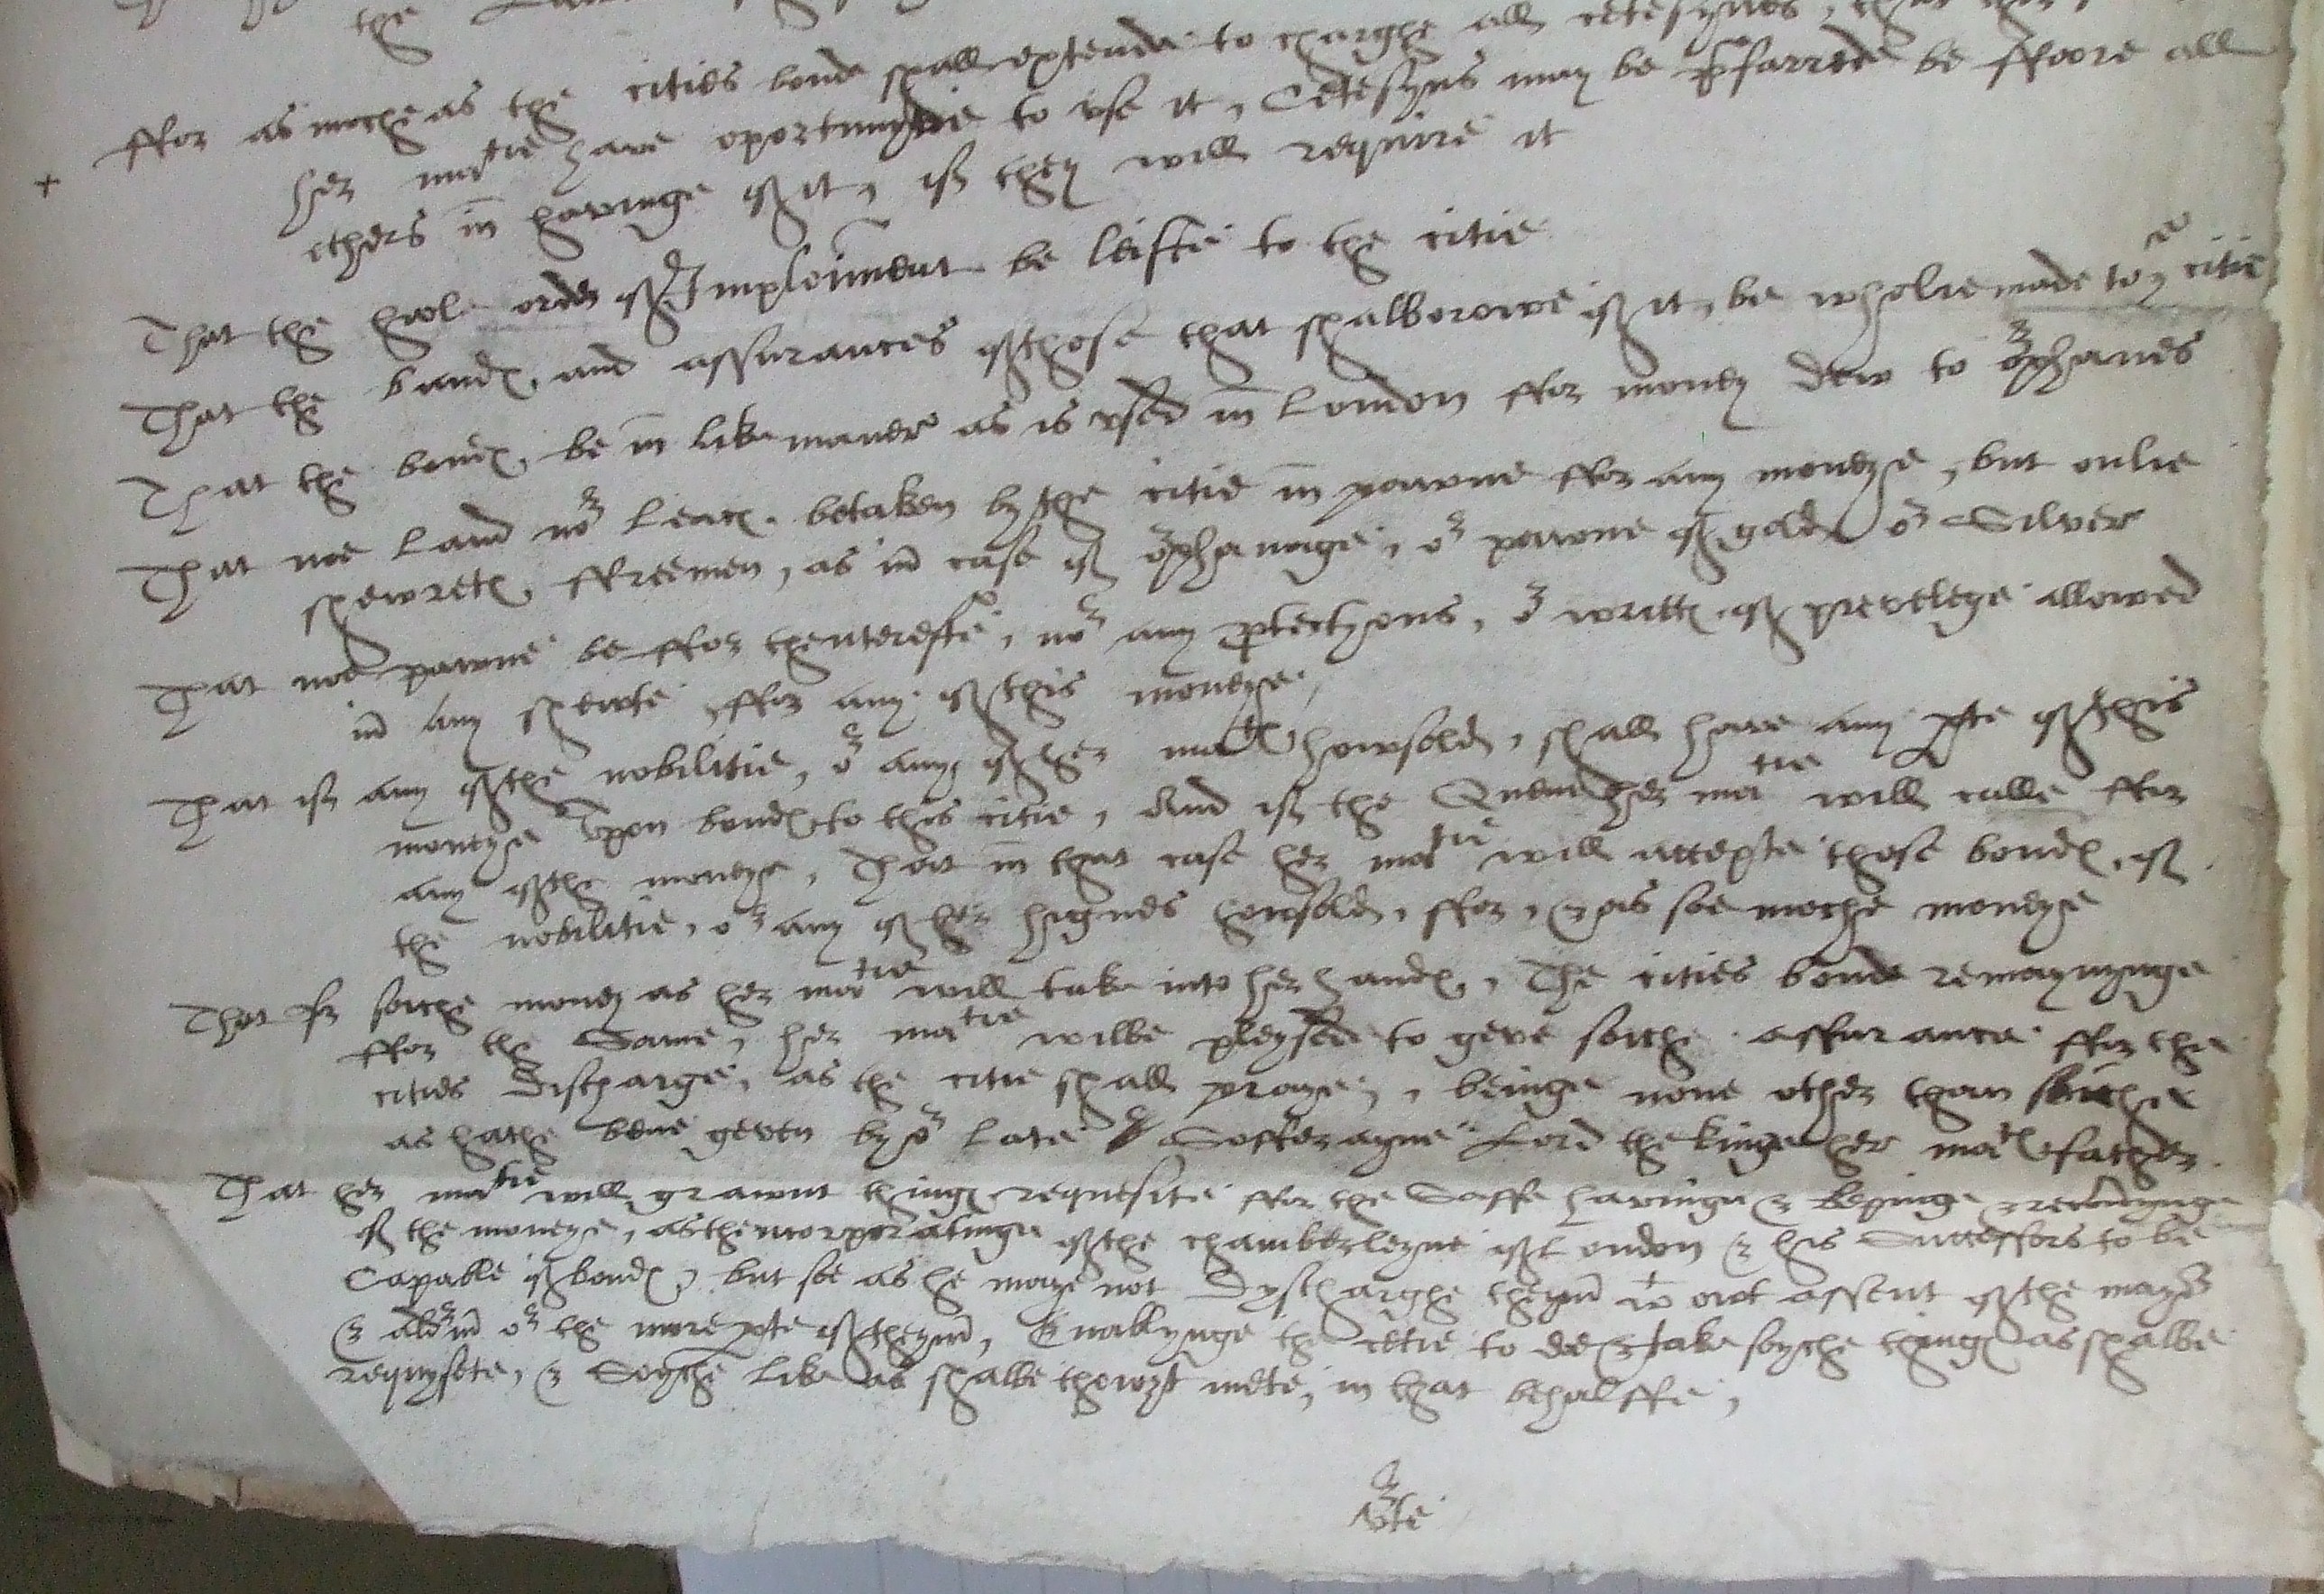 the
ffor as moche as the cities bonde shall extende to charghe all cetesyns, that
+ her matie have oportunytie to use it, Cetesyns may be pfarrede be ffoore all
others in havinge of it, if they will require it
That the hole order of Imploiment be leifte to the citie
That the bandes, and assurances of those that shalborowe of it, be wholie made to ye citie
That the bondes, be in like maner as is vsed in London ffor money dew to orphanes
That noe land nor leaces betaken by the citie in pawne ffor any moneye, but onlie
shewretes, ffreemen, as in case of orphanage, or pawne of golde or Silver
That noe pawne be ffor thenterreste, nor any ptectyons, or writtes of prevelege allowed
in any shewte, ffor any of this moneye,
That if any of the nobilitie, or any of her mates howsold, shall have any pte of this
moneye Upon bondes to this citie, And if the Quene her matie will calle ffor
any of the moneye, That in that case her matie will accepte those bondes, of
the nobilitie, or any of her highnes howsold, ffor, & as soe moche moneye
That for soiche money as her matie will take into her handes, The cities bonde remaynynge
ffor the Same, her matie wilbe pleysed to geve soiche assurance ffor the
cities discharge, as the citie shall praye, beinge none other than suiche
as hathe bene geven by or late Sofferayne Lord the kinge her mates father
That her matie will grawnt thinges requesite ffor the Saffe havinge & kepinge &
of the moneye, as thencorporatinge of the chamberleyne of London & his Successors to be
Capable of bondes, but soe as he maye not Dyscharghe theym wt owt assent of the mayor
& aldrm or the more pte of theym, Enablynge the cetie to doe & take soyche thinges as shalbe
requysete, & Soyche like as shalbe thowght mete, in that behalffe,